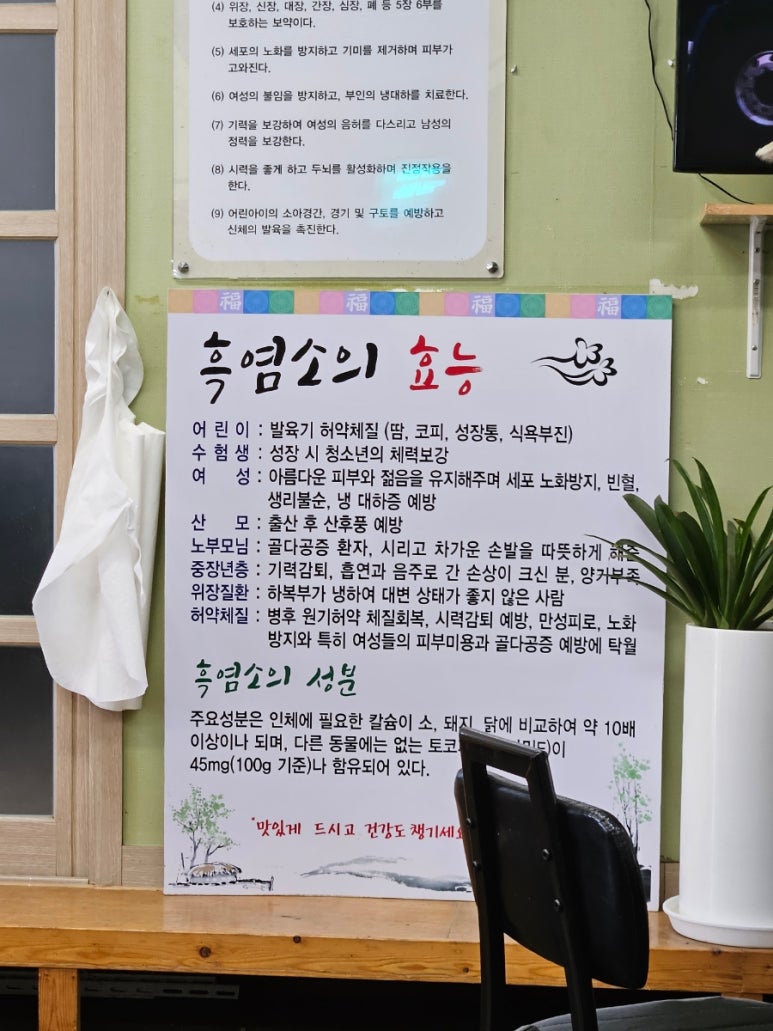 (4) 위장, 신장, 대장, 간장, 심장, 폐 등 5장 6부를
보호하는 보약이다.
(5) 세포의 노화를 방지하고 기미를 제거하며 피부가
고와진다.
(6) 여성의 불임을 방지하고, 부인의 냉대하를 치료한다.
(7) 기력을 보강하여 여성의 음허를 다스리고 남성의
정력을 보강한다.
(8) 시력을 좋게 하고 두뇌를 활성화하며 진정작용을
한다.
(9) 어린아이의 소아경간, 경기 및 구토를 예방하고
신체의 발육을 촉진한다.
福 福 福 福
흑염소의 효능
어 린 이 : 발육기 허약체질 (땀, 코피, 성장통, 식욕부진)
수 험 생 : 성장 시 청소년의 체력보강
여 성 : 아름다운 피부와 젊음을 유지해주며 세포 노화방지, 빈혈,
생리불순, 냉 대하증 예방
산 모 : 출산 후 산후풍 예방
노부모님 : 골다공증 환자, 시리고 차가운 손발을 따뜻하게 해줌
중장년층 : 기력감퇴, 흡연과 음주로 간 손상이 크신 분, 양기부족
위장질환 : 하복부가 냉하여 대변 상태가 좋지 않은 사람
허약체질 : 병후 원기허약 체질회복, 시력감퇴 예방, 만성피로, 노화
방지와 특히 여성들의 피부미용과 골다공증 예방에 탁월
흑염소의 성분
주요성분은 인체에 필요한 칼슘이 소, 돼지, 닭에 비교하여 약 10배
이상이나 되며, 다른 동물에는 없는
45mg(100g 기준)나 함유되어 있다.
*맛있게 드시고 건강도 챙기세요